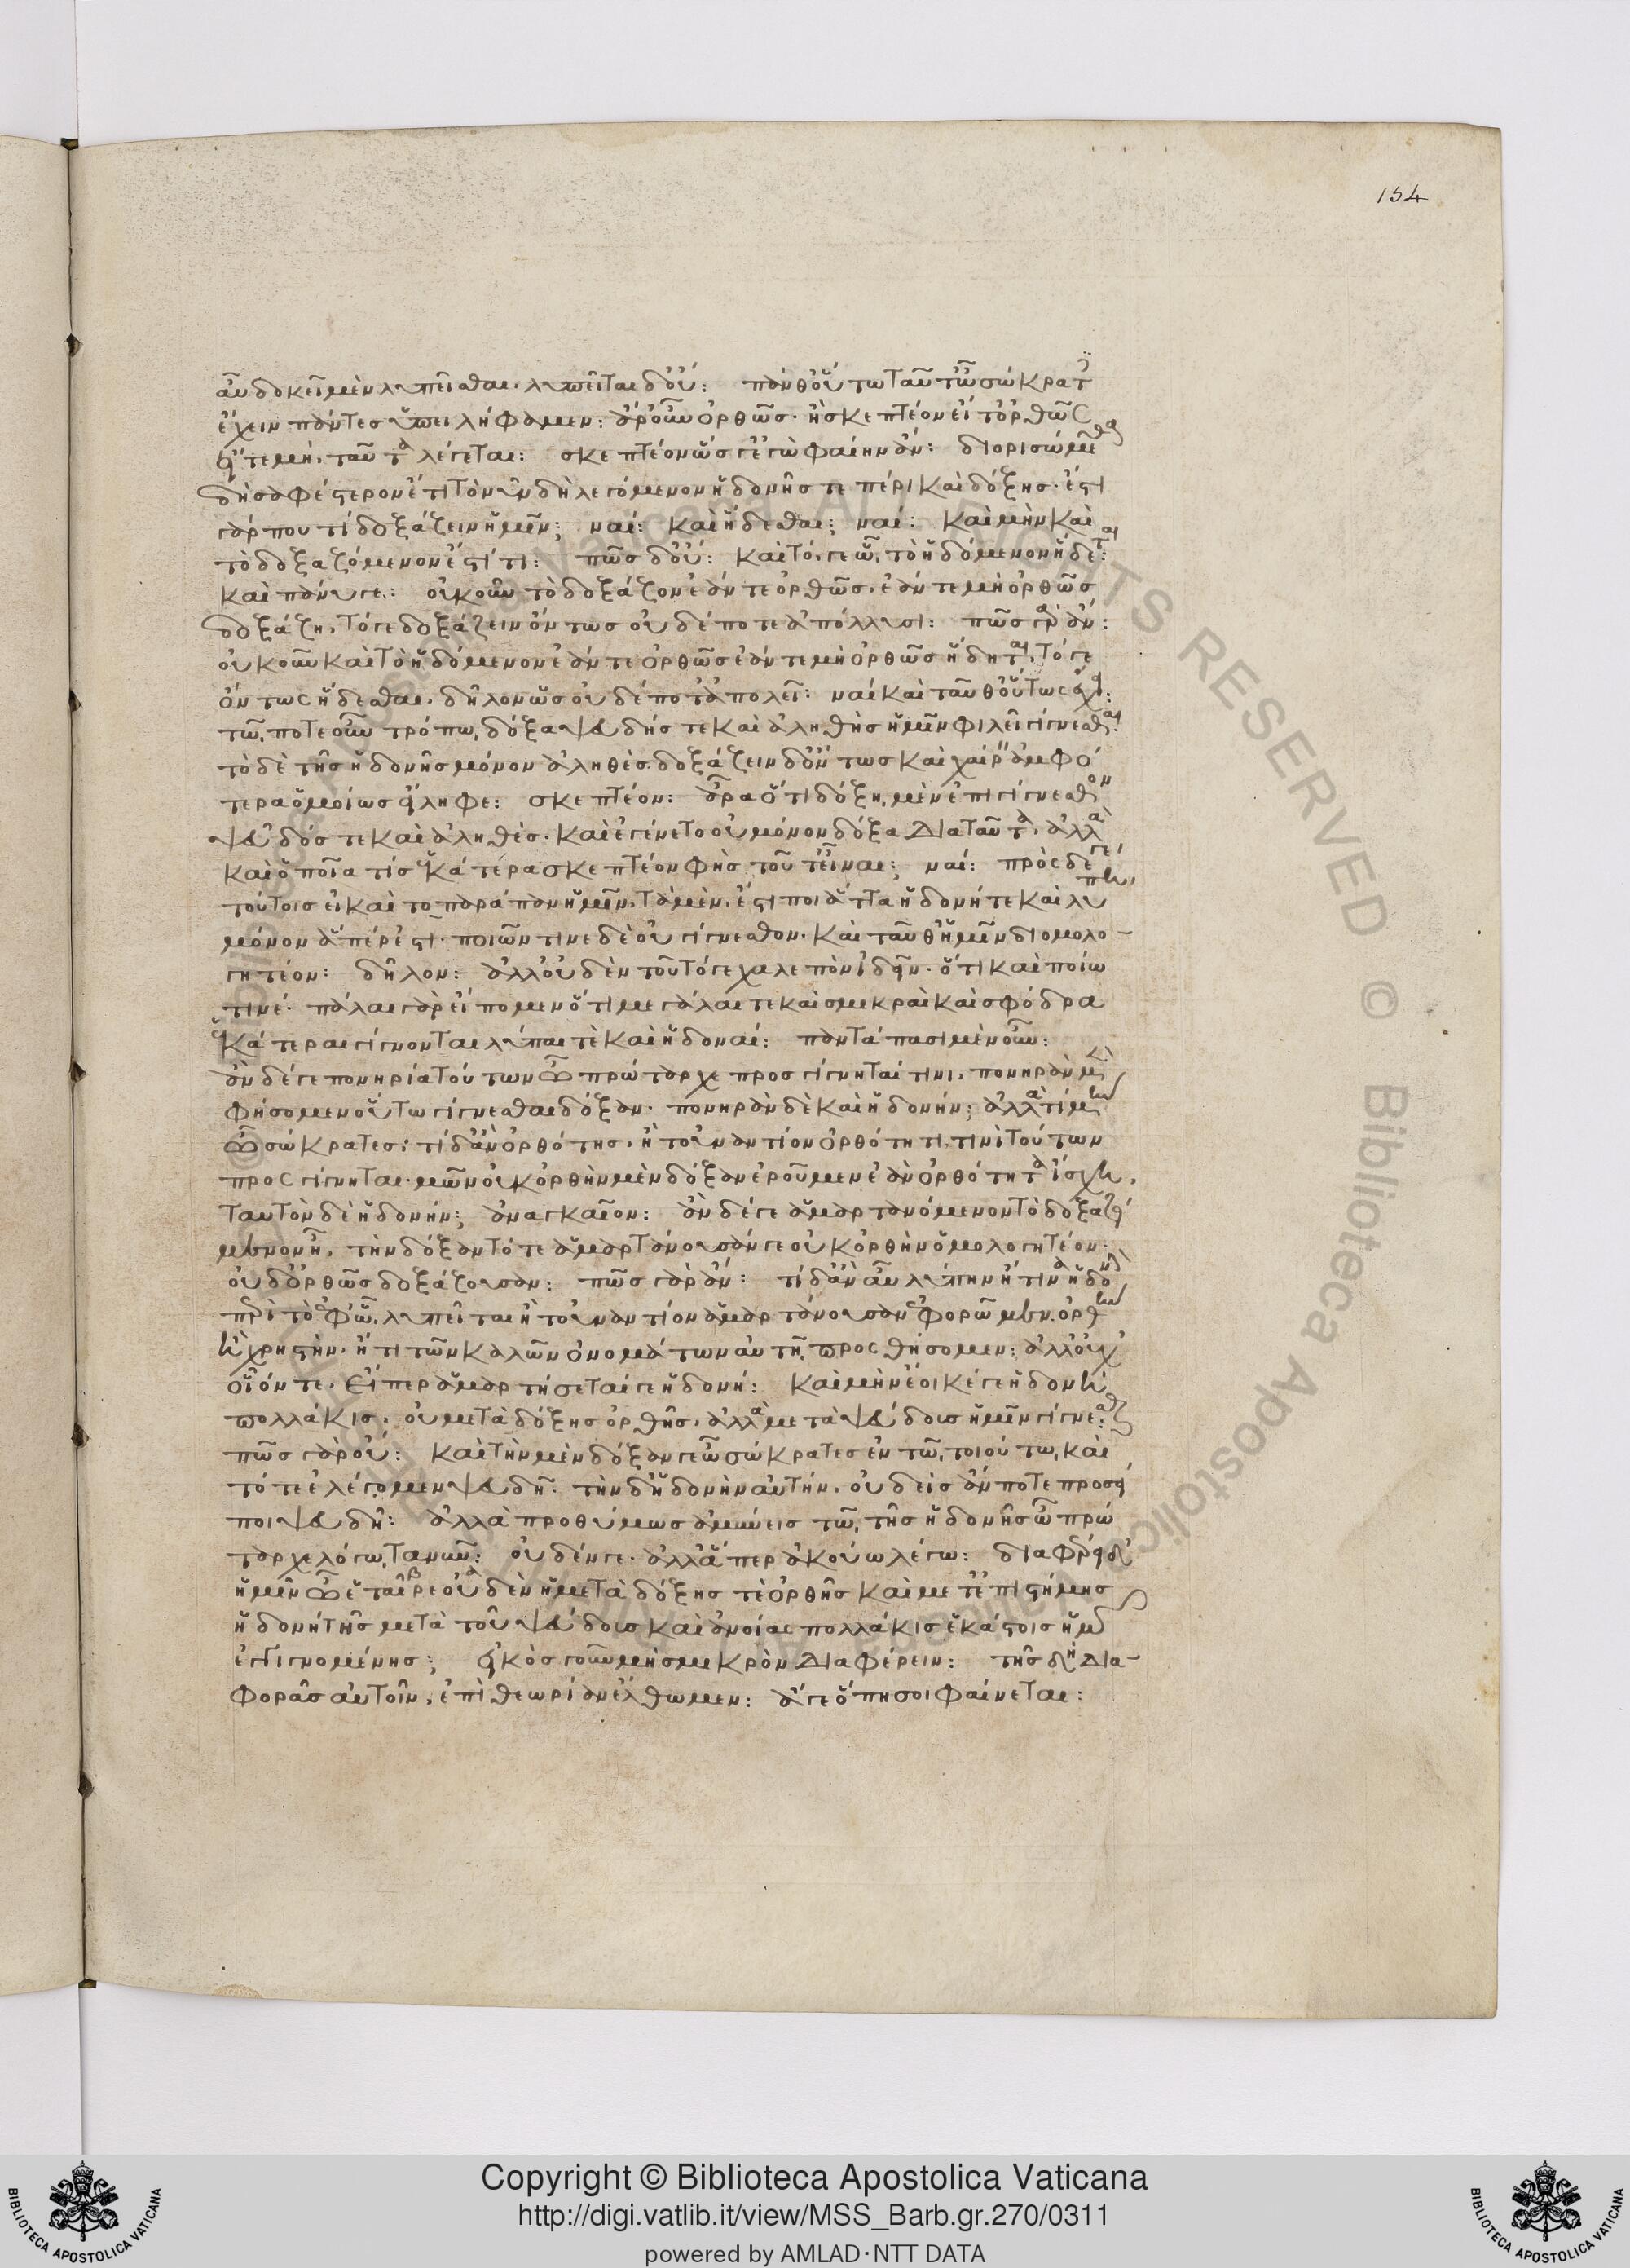 154
αὖ δοκεῖ μὲν λυπεῖσθαι. λυπεῖται δ' οὔ: πάνθ' οὕτω ταῦτ' ὦ σώκρατες
ἔχειν πάντες ὑπειλήφαμεν: ἆρ' οὖν ὀρθῶς. ἢ σκεπτέον εἴτ' ὀρθῶς
εἴτε μή. ταῦτα λέγεται: σκεπτέον ὥς γ' ἐγὼ φαίην ἄν: διορισώμεθα
δὴ σαφέστερον ἔτι τὸ νῦν δὴ λεγόμενον ἡδονῆς τε πέρι καὶ δόξης. ἔστι
γάρ που τί δοξάζειν ἡμῖν; ναί: καὶ ἥδεσθαι; ναί: καὶ μὴν καὶ
τὸ δοξαζόμενον ἐστί τι: πῶς δ' οὔ: καὶ τό γε ᾧ, τὸ ἡδόμενον ἥδεται:
καὶ πάνυ γε: οὐκοῦν τὸ δοξάζον ἐάν τε ὀρθῶς. ἐάν τε μὴ ὀρθῶς
δοξάζη, τό γε δοξάζειν ὄντως οὐδέποτε ἀπόλλυσι: πῶς γὰρ ἄν:
οὐκοῦν καὶ τὸ ἡδόμενον ἐάν τε ὀρθῶς ἐάν τε μὴ ὀρθῶς ἥδηται, τό γε
ὄντως ἥδεσθαι. δῆλον ὡς οὐδέποτ' ἀπολεῖ: ναί καὶ ταῦθ' οὕτως ἔχει:
τῶ, ποτε οὖν τρόπω, δόξα ψευδής τε καὶ ἀληθὴς ἡμῖν φιλεῖ γίγνεσθαι.
τὸ δὲ τῆς ἡδονῆς μόνον ἀληθές. δοξάζειν δ' ὄντως καὶ χαίρειν ἀμφό
τερα ὁμοίως εἴληφε: σκεπτέον: ἆρα ὅτι δόξη, μὲν ἐπιγίγνεσθον
ψεῦδός τε καὶ ἀληθές. καὶ ἐγένετο οὐ μόνον δόξα διὰ ταῦτα. ἀλλὰ
καὶ ὁποῖά τις ἑκατέρα σκεπτέον φὴς τοῦτ' εἶναι; ναί: πρὸς δέ γε
τούτοις εἰ καὶ τὸ παράπαν ἡμῖν. τὰ μέν. ἐστι ποιἄττα ἡδονή τε καὶ λύπη,
μόνον ἅπερ ἐστι. ποιῶν τινε δὲ οὐ γίγνεσθον. καὶ ταῦθ' ἡμῖν διομολο-
γητέον: δῆλον: ἀλλ' οὐδὲν τοῦτό γε χαλεπὸν ἰδεῖν. ὅτι καὶ ποίω
τινέ. πάλαι γὰρ εἴπομεν ὅτι μεγάλαι τε καὶ σμικραὶ καὶ σφόδρα
ἑκάτεραι γίγνονται λῦπαι τὲ καὶ ἡδοναί: πανταπασι μὲν οὖν:
ἂν δέ γε πονηρία τούτων ὦ πρώταρχε προσγίγνηταί τινι. πονηρὰν μὲν
φήσομεν οὕτω γίγνεσθαι δόξαν. πονηρὰν δὲ καὶ ἡδονήν; ἀλλὰ τί μὴν
ὦ σώκρατες: τί δ' ἂν ὀρθότης. ἢ τοὐναντίον ὀρθότητι, τινὶ τούτων
προσγίγνηται. μῶν οὐκ ὀρθὴν μὲν δόξαν ἐροῦμεν ἐὰν ὀρθότητα ἴσχη.
ταυτὸν δὲ ἡδονήν; ἀναγκαῖον: ἂν δέ γε ἁμαρτανόμενον τὸ δοξαζό
μενον ᾖ. τὴν δόξαν τότε ἁμαρτάνουσάν γε οὐκ ὀρθὴν ὁμολογητέον:
οὐδ' ὀρθῶς δοξάζουσαν: πῶς γὰρ ἄν: τί δ' ἂν αὖ λύπην ἤ τινα ἡδονὴν
περὶ τὸ ἐφ' ᾧ, λυπεῖται ἢ τοὐναντίον ἁμαρτάνουσαν ἐφορῶμεν. ὀρθὴν
ἢ χρηστὴν. ἤ τι τῶν καλῶν ὀνομάτων αὐτῆ, προσθήσομεν: ἀλλ' οὐχ
οἷόν τε. εἴπερ ἁμαρτήσεταί γε ἡδονή: καὶ μὴν ἔοικέ γε ἡδονὴ
πολλάκις. οὐ μετὰ δόξης ὀρθῆς. ἀλλὰ μετὰ ψεύδους ἡμῖν γίγνεσθαι:
πῶς γὰρ οὔ: καὶ τὴν μὲν δόξαν γε ὦ σώκρατες ἐν τῶ, τοιούτω, καὶ
τότε ἐλέγομεν ψευδῆ. τὴν δ' ἡδονὴν αὐτήν. οὐδεὶς ἄν ποτε προσεί
ποι ψευδῆ: ἀλλὰ προθύμως ἀμύνεις τῶ, τῆς ἡδονῆς ὦ πρώ
ταρχε λόγω, τανῦν: οὐδέν γε. ἀλλ' ἅπερ ἀκούω λέγω: διαφέρει δ'
ἡμῖν ὦ ἑταῖρε οὐδὲν ἡ μετὰ δόξης τὲ ὀρθῆς καὶ μετ' ἐπιστήμης
ἡδονὴ τῆς μετὰ τοῦ ψεύδους καὶ ἀνοίας πολλάκις ἑκάστοις ἡμῶν
ἐγγιγνομένης; εἰκὸς γοῦν μὴ σμικρὸν διαφέρειν: τῆς δὴ δια-
φορᾶς αὐτοῖν. ἐπὶ θεωρίαν ἔλθωμεν: ἄγε ὅπη σοι φαίνεται:
ALL RIGHTS RESERVED © Biblioteca Apostolica Vaticana
Copyright © Biblioteca Apostolica Vaticana
http://digi.vatlib.it/view/MSS_Barb.gr.270/0311
powered by AMLAD·NTT DATA
BIBLIOTECA APOSTOLICA VATICANA
BIBLIOTECA APOSTOLICA VATICANA